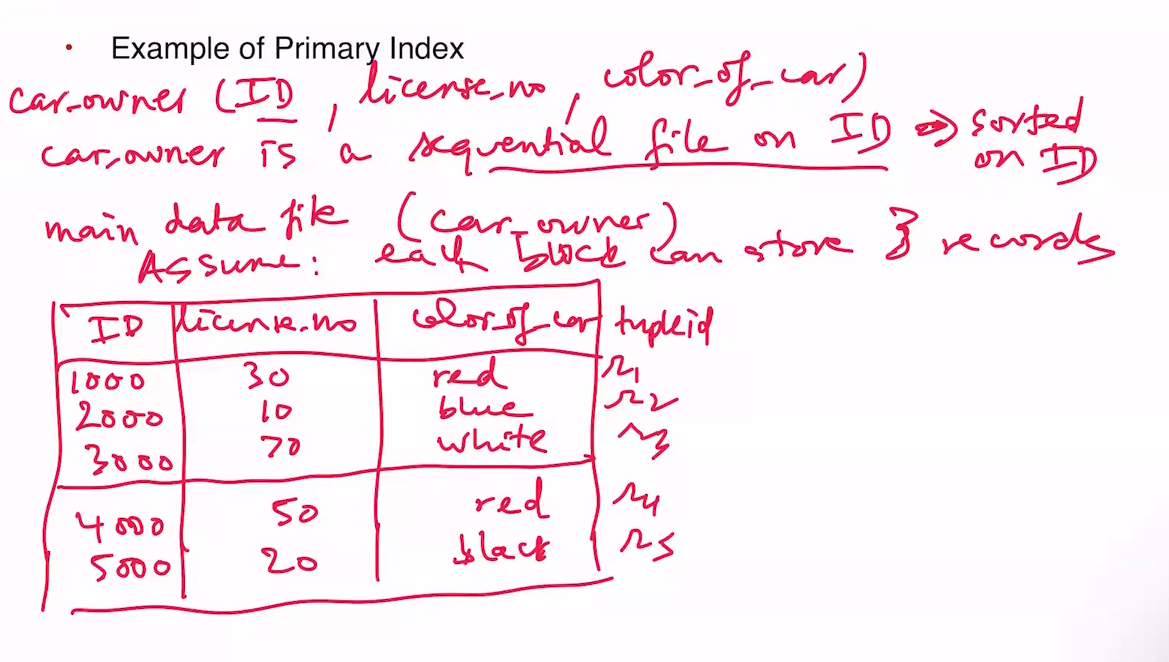 • Example of Primary Index
car_owner (ID, license_no, color_of_car)
car_owner is a sequential file on ID => sorted on ID
main data file (car_owner)
Assume: each block can store 3 records
ID license_no color_of_car tupleid
1000 30 red r1
2000 10 blue r2
3000 70 white r3
4000 50 red r4
5000 20 black r5